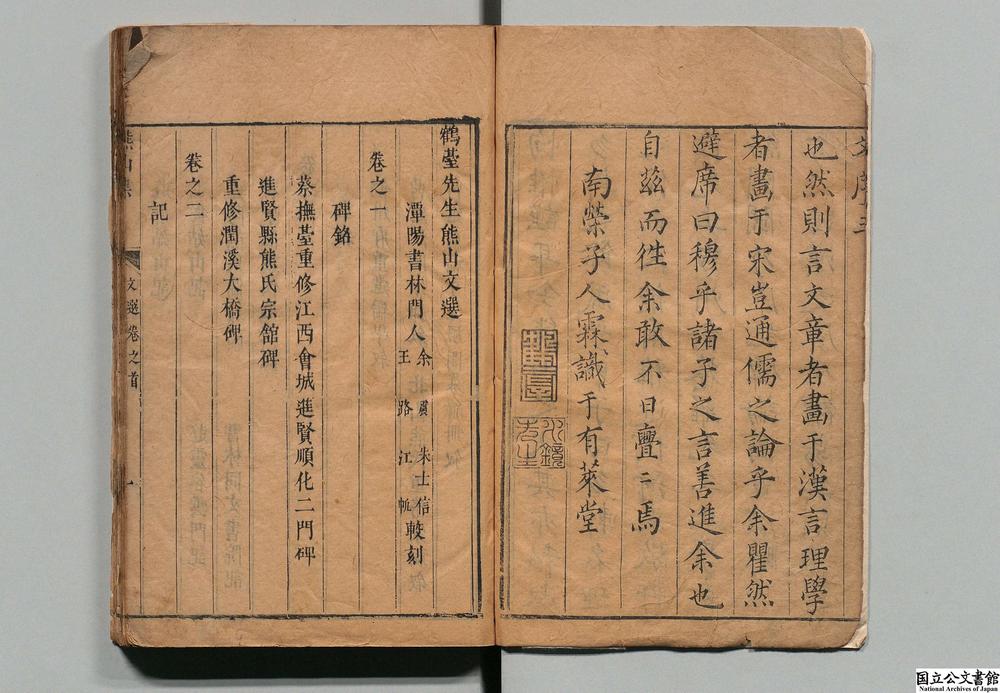 也然則言文章者畫于漢言理學
者畫于宋豈通儒之論乎余瞿然
避席曰穆乎諸子之言善進余也
自茲而徃余敢不日亹二焉
南榮子人霖識于有萊堂
鶴臺先生熊山文選
潭陽書林門人
余 朱士信
王路 江帆
較刻
卷之一
碑銘
蔡撫臺重修江西會城進賢順化二門碑
進賢縣熊氏宗舘碑
重修潤溪大橋碑
卷之二
記
文選卷之首
一
国立公文書館
National Archives of Japan